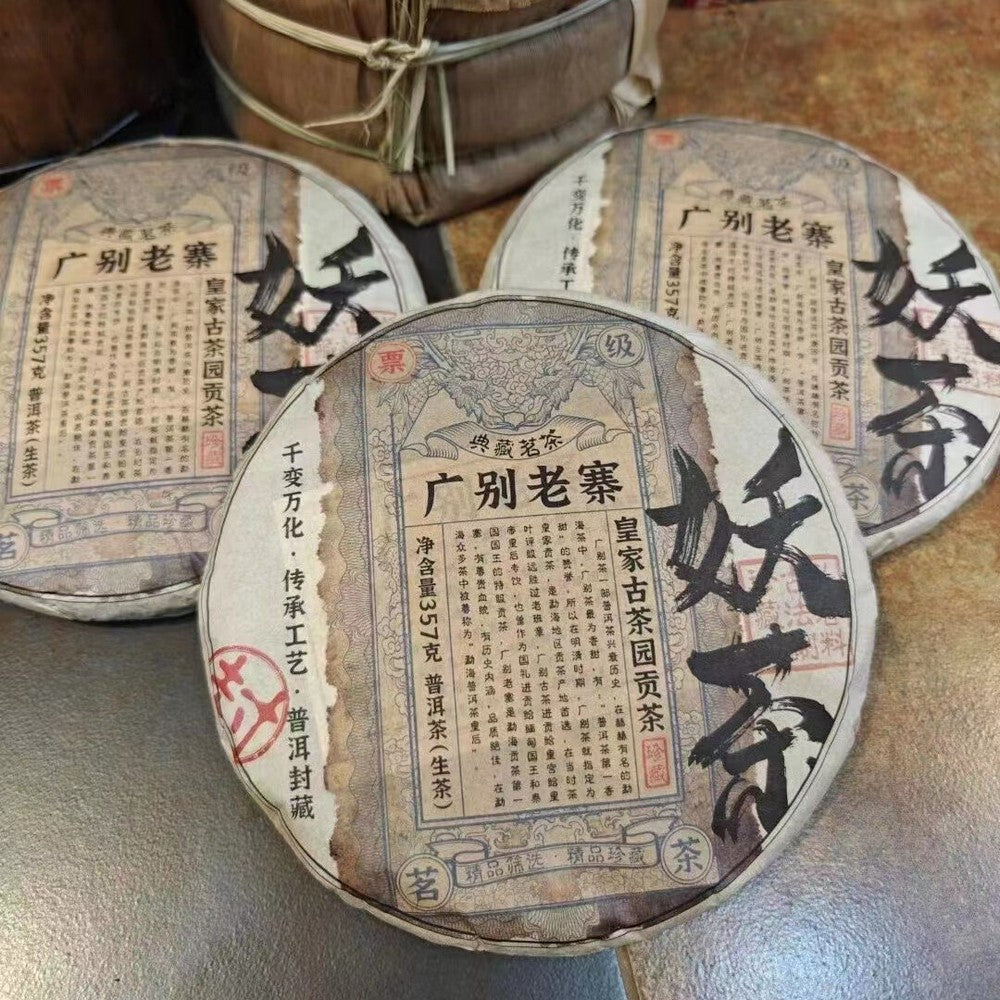 票
级
典藏茗茶
广别老寨
皇家古茶园贡茶
净含量357克 普洱茶(生茶)
珍藏
妖
茗
精品筛洗·精品珍藏
票
级
千变万化·传承工
典藏茗茶
广别老寨
皇家古茶园贡茶
净含量357克
珍藏
妖茶
茶
票
级
典藏茗茶
广别老寨
妖茶
皇家古茶园贡茶
珍藏
广别茶一部普洱茶兴衰历史,在赫赫有名的勐
海茶中,广别茶最为香甜,有,"普洱茶第一香
甜"的赞誉,所以在明清时期,广别茶就指定为
皇家贡茶,是勐海地区贡茶产地首选,在当时茶
叶评级远胜过老班章,广别古茶进贡给皇宫给皇
帝皇后专饮,也曾作为国礼进贡给缅甸国王和泰
国国王的特级贡茶,广别老寨是勐海贡茶第一
寨,有尊贵血统,有历史内涵,品质绝佳,在勐
海众多茶中被尊称为"勐海普洱茶皇后".
净含量357克 普洱茶(生茶)
千变万化·传承工艺·普洱封藏
茗
精品筛洗·精品珍藏
茶